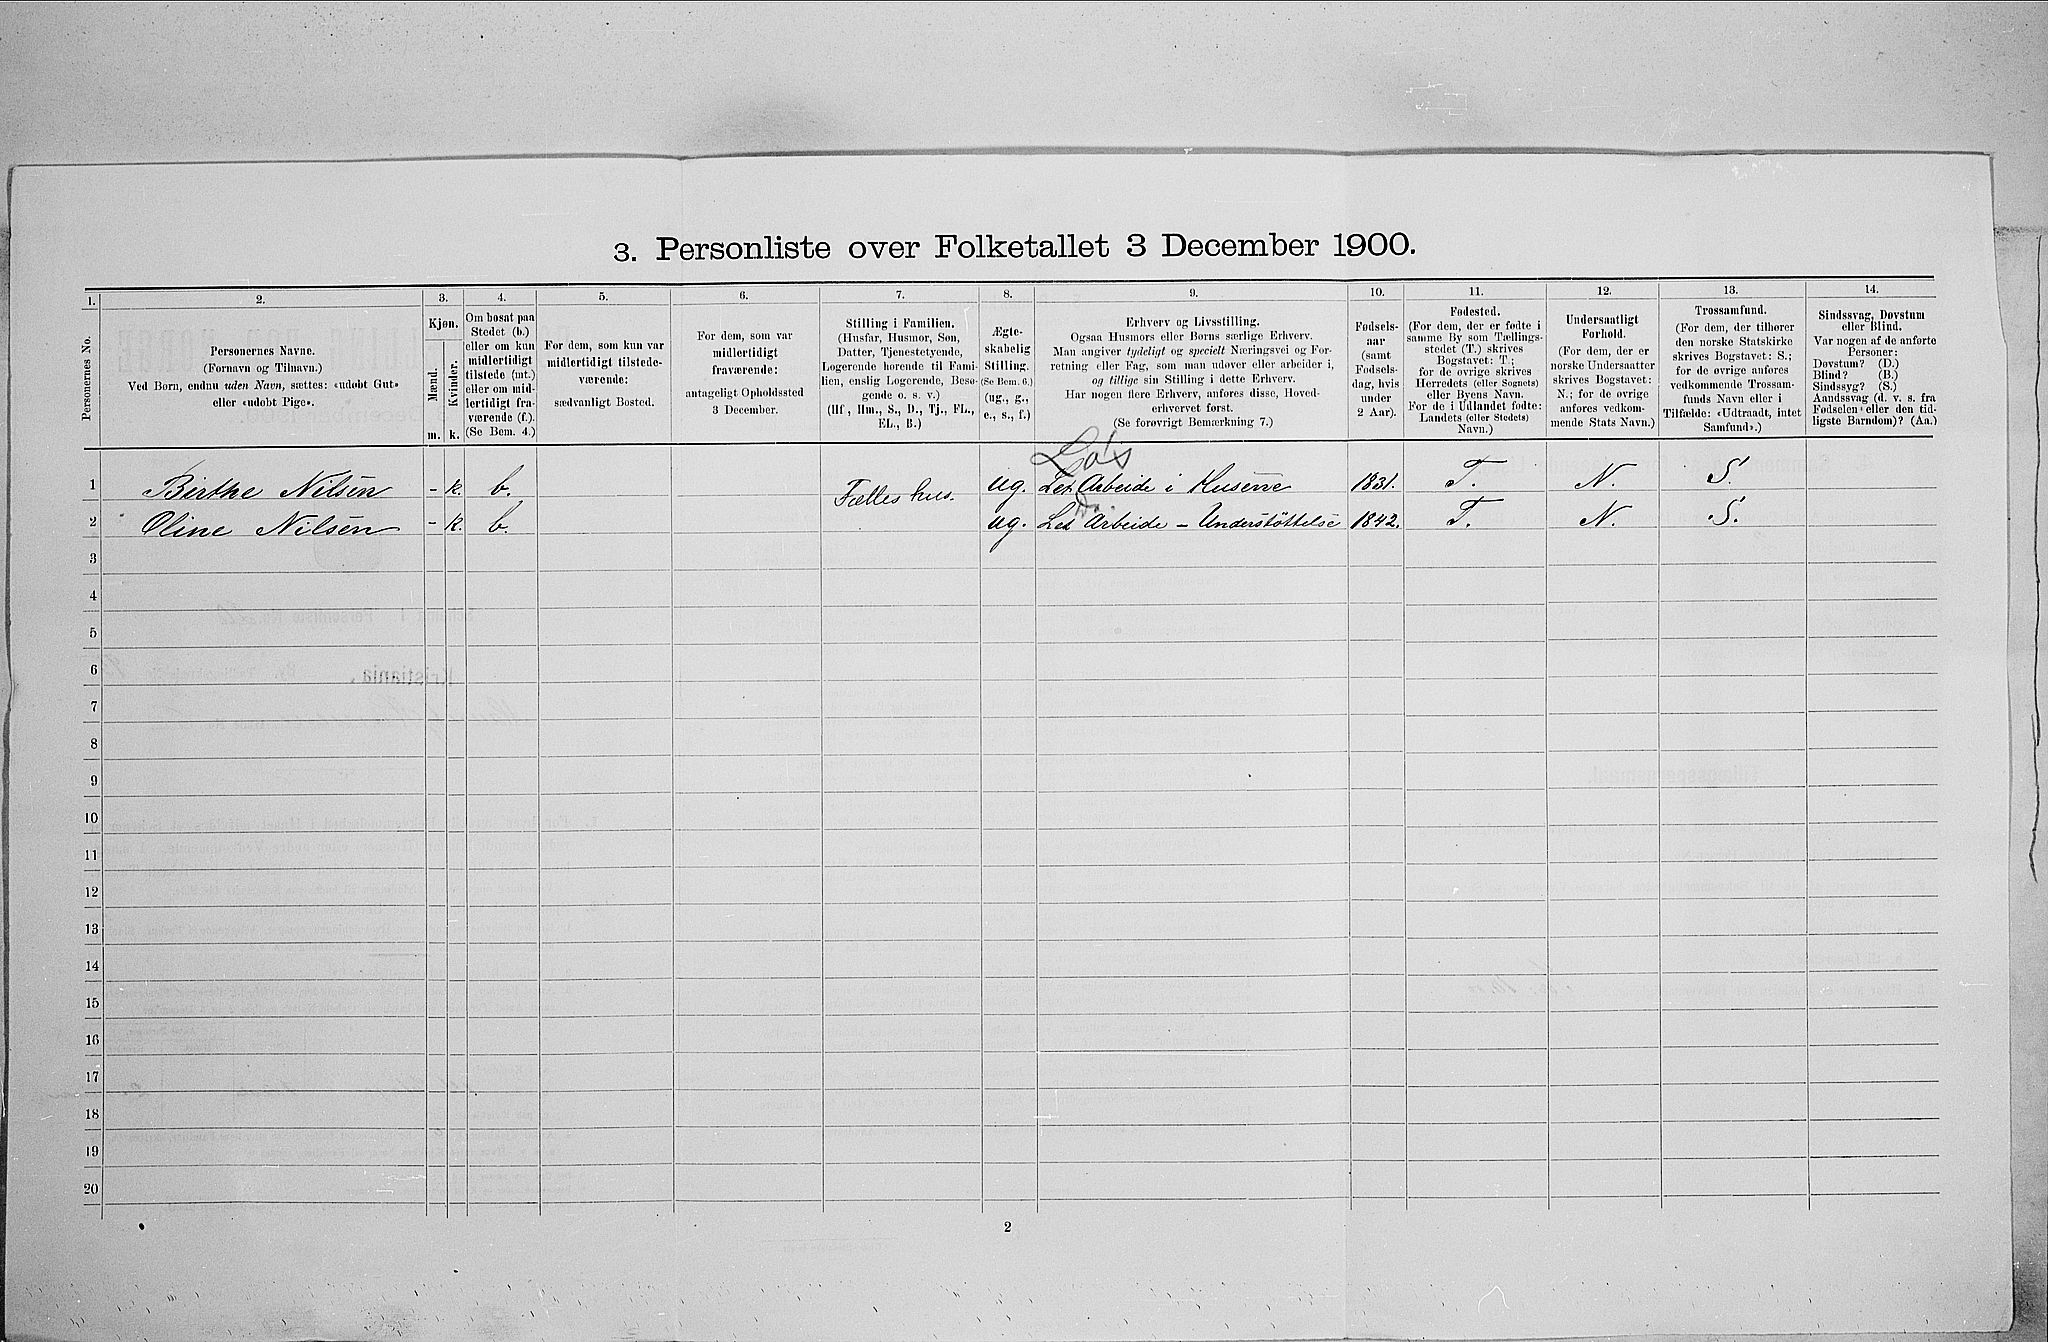 3. Personliste over Folketallet 3 December 1900.
1. 2. 3. 4. 5. 6. 7. 8. 9. 10. 11. 12. 13. 14.
Personernes No.
Personernes Navne.
(Fornavn og Tilnavn.)
Ved Børn, endnu uden Navn, sættes: «udøbt Gut»
eller «udøbt Pige».
Kjøn.
Mænd.
Kvinder.
m. k.
Om bosat paa
Stedet (b.)
eller om kun
midlertidigt
tilstede (mt.)
eller om mid-
lertidigt fra-
værende (f.)
(Se Bem. 4.)
For dem, som kun var
midlertidigt tilstede-
værende:
sædvanligt Bosted.
For dem, som var
midlertidigt
fraværende:
antageligt Opholdssted
3 December.
Stilling i Familien.
(Husfar, Husmor, Søn,
Datter, Tjenestetyende,
Logerende hørende til Fami-
lien, enslig Logerende, Besø-
gende o. s. v.)
(Hf, Hm., S., D., Tj., FL.,
EL., B.)
Ægte-
skabelig
Stilling.
(Se Bem. 6.)
(ug., g.,
e., s., f.)
Erhverv og Livsstilling.
Ogsaa Husmors eller Børns særlige Erhverv.
Man angiver tydeligt og specielt Næringsvei og For-
retning eller Fag, som man udøver eller arbeider i,
og tillige sin Stilling i dette Erhverv.
Har nogen flere Erhverv, anføres disse, Hoved-
erhvervet først.
(Se forøvrigt Bemærkning 7.)
Fødsels-
aar
(samt
Fødsels-
dag, hvis
under
2 Aar).
Fødested.
(For dem, der er fødte i
samme By som Tællings-
stedet (T.) skrives
Bogstavet: T.;
for de øvrige skrives
Herredets (eller Sognets)
eller Byens Navn.
For de i Udlandet fødte:
Landets (eller Stedets)
Navn.)
Undersaatligt
Forhold.
(For dem, der er
norske Undersaatter
skrives Bogstavet:
N.; for de øvrige
anføres vedkom-
mende Stats Navn.)
Trossamfund.
(For dem, der tilhører
den norske Statskirke
skrives Bogstavet: S.;
for de øvrige anføres
vedkommende Trossam-
funds Navn eller i
Tilfælde: «Udtraadt, intet
Samfund».)
Sindssvag, Døvstum
eller Blind.
Var nogen af de anførte
Personer:
Døvstum? (D.)
Blind? (B.)
Sindssyg? (S.)
Aandssvag (d. v. s. fra
Fødselen eller den tid-
ligste Barndom)? (Aa.)
Løs
1 Birthe Nilsen - k. b. Fælles hus. ug. Let Arbeide i Husene 1831. T. N. S.
2 Oline Nilsen - k. b. ug. Let Arbeide - Understøttelse 1842. T. N. S.
3
4
5
6
7
8
9
10
11
12
13
14
15
16
17
18
19
20
2